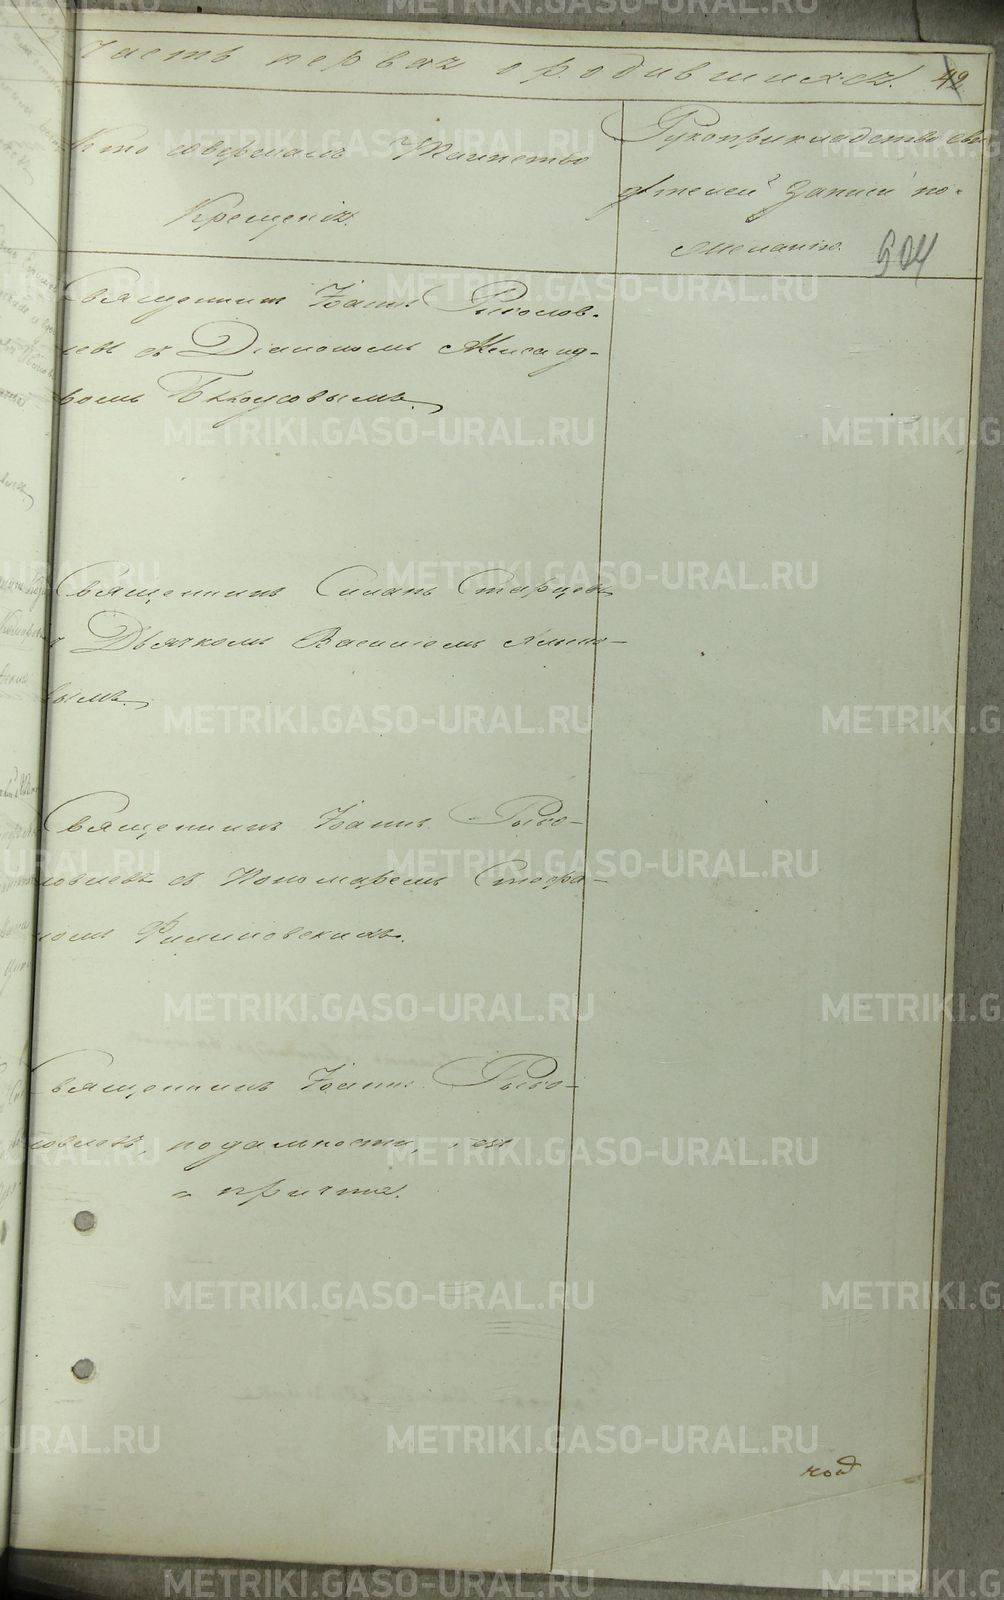 Часть первая о родившихся. 42
Кто совершалъ Таинство
Крещенія.
Рукоприкладство сви-
дѣтелей записи по
желанію. 904
Священникъ Іоаннъ Рыболов-
левъ съ Діакономъ Александ-
ромъ
Священникъ Симонъ Старцевъ
съ Дьячкомъ Василіемъ
вымъ.
Священникъ Іоаннъ Рыбо-
ловлевъ съ Пономаремъ Стефа-
номъ Филиповскимъ.
Священникъ Іоаннъ Рыбо-
ловлевъ, по дальности, безъ
причта.
METRIKI.GASO-URAL.RU